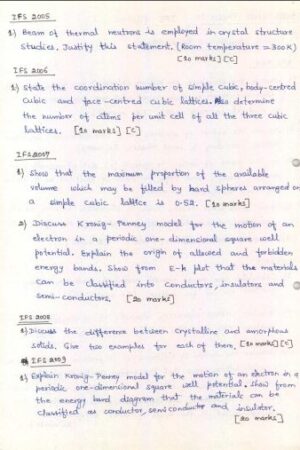 IFS 2005
1) Beam of thermal neutrons is employed in crystal structure
studies. Justify this statement. [Room temperature = 300K]
[20 marks] [C]
IFS 2006
1) State the coordination number of simple cubic, body-centred
cubic and face-centred cubic lattices. Also determine
the number of atoms per unit cell of all the three cubic
lattices. [10 marks] [C]
IFS 2007
1) Show that the maximum proportion of the available
volume which may be filled by hard spheres arranged on
a simple cubic lattice is 0.52. [10 marks]
2) Discuss Kronig-Penney model for the motion of an
electron in a periodic one-dimensional square well
potential. Explain the origin of allowed and forbidden
energy bands. Show from E-k plot that the materials
can be classified into conductors, insulators and
semi-conductors. [20 marks]
IFS 2008
1) Discuss the difference between crystalline and amorphous
solids. Give two examples for each of them. [10 marks]
IFS 2009
1) Explain Kronig-Penney model for the motion of an electron in a
periodic one-dimensional square well potential. Show from
the energy band diagram that the materials can be
classified as conductor, semiconductor and insulator.
[20 marks]